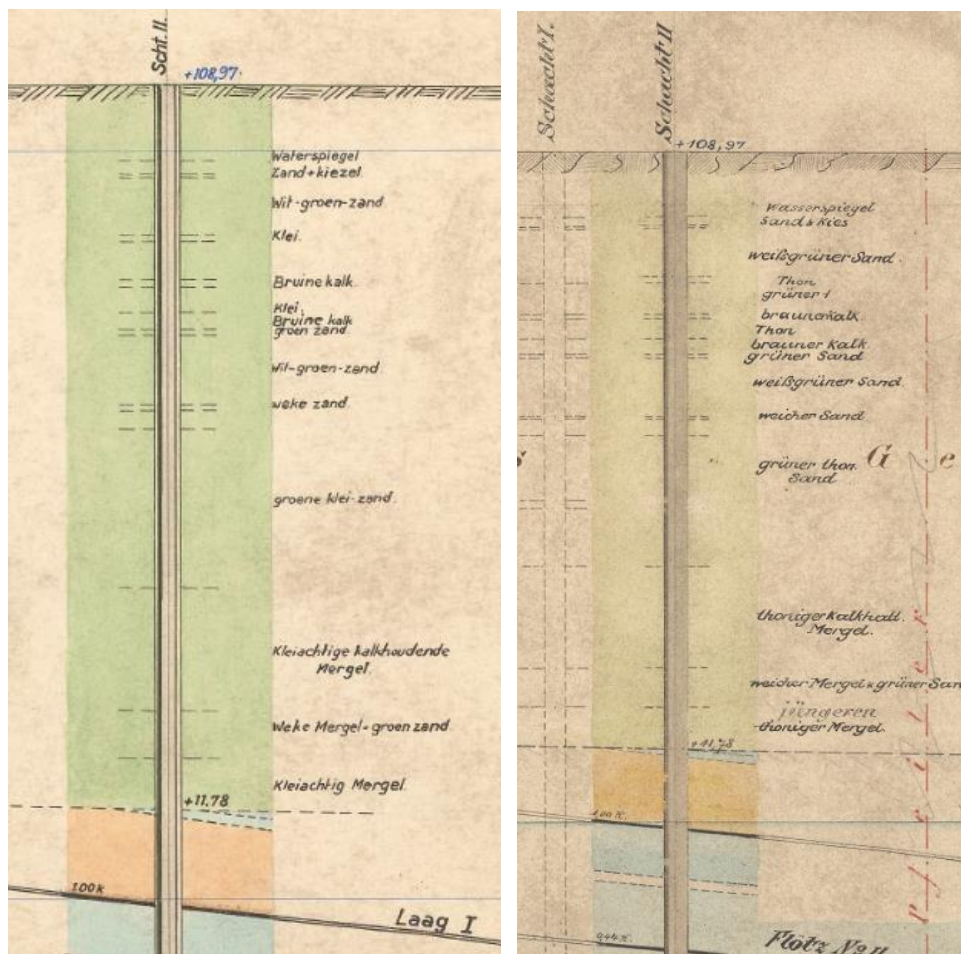 Scht. II.
+108,97.
Waterspiegel
Zand+kiezel.
Wit-groen-zand.
Klei.
Bruine kalk.
Klei.
Bruine kalk
groen zand.
Wit-groen-zand.
weke zand.
groene klei-zand.
Kleiachtige kalkhoudende
Mergel.
Weke Mergel-groen zand.
Kleiachtig Mergel.
+11.78
1.00k
Laag I
Schacht I.
Schacht II
+108,97
Wasserspiegel
Sand & Kies
weißgrüner Sand.
Thon
grüner
Thon
brauner Kalk.
grüner Sand
weißgrüner Sand.
weicher Sand
grüner thon.
Sand
G e
thoniger Kalkhalt.
Mergel.
weicher Mergel & grüner San
jüngeren
thoniger Mergel.
+11,78
1.00 K.
Flötz No II
0,44 K.